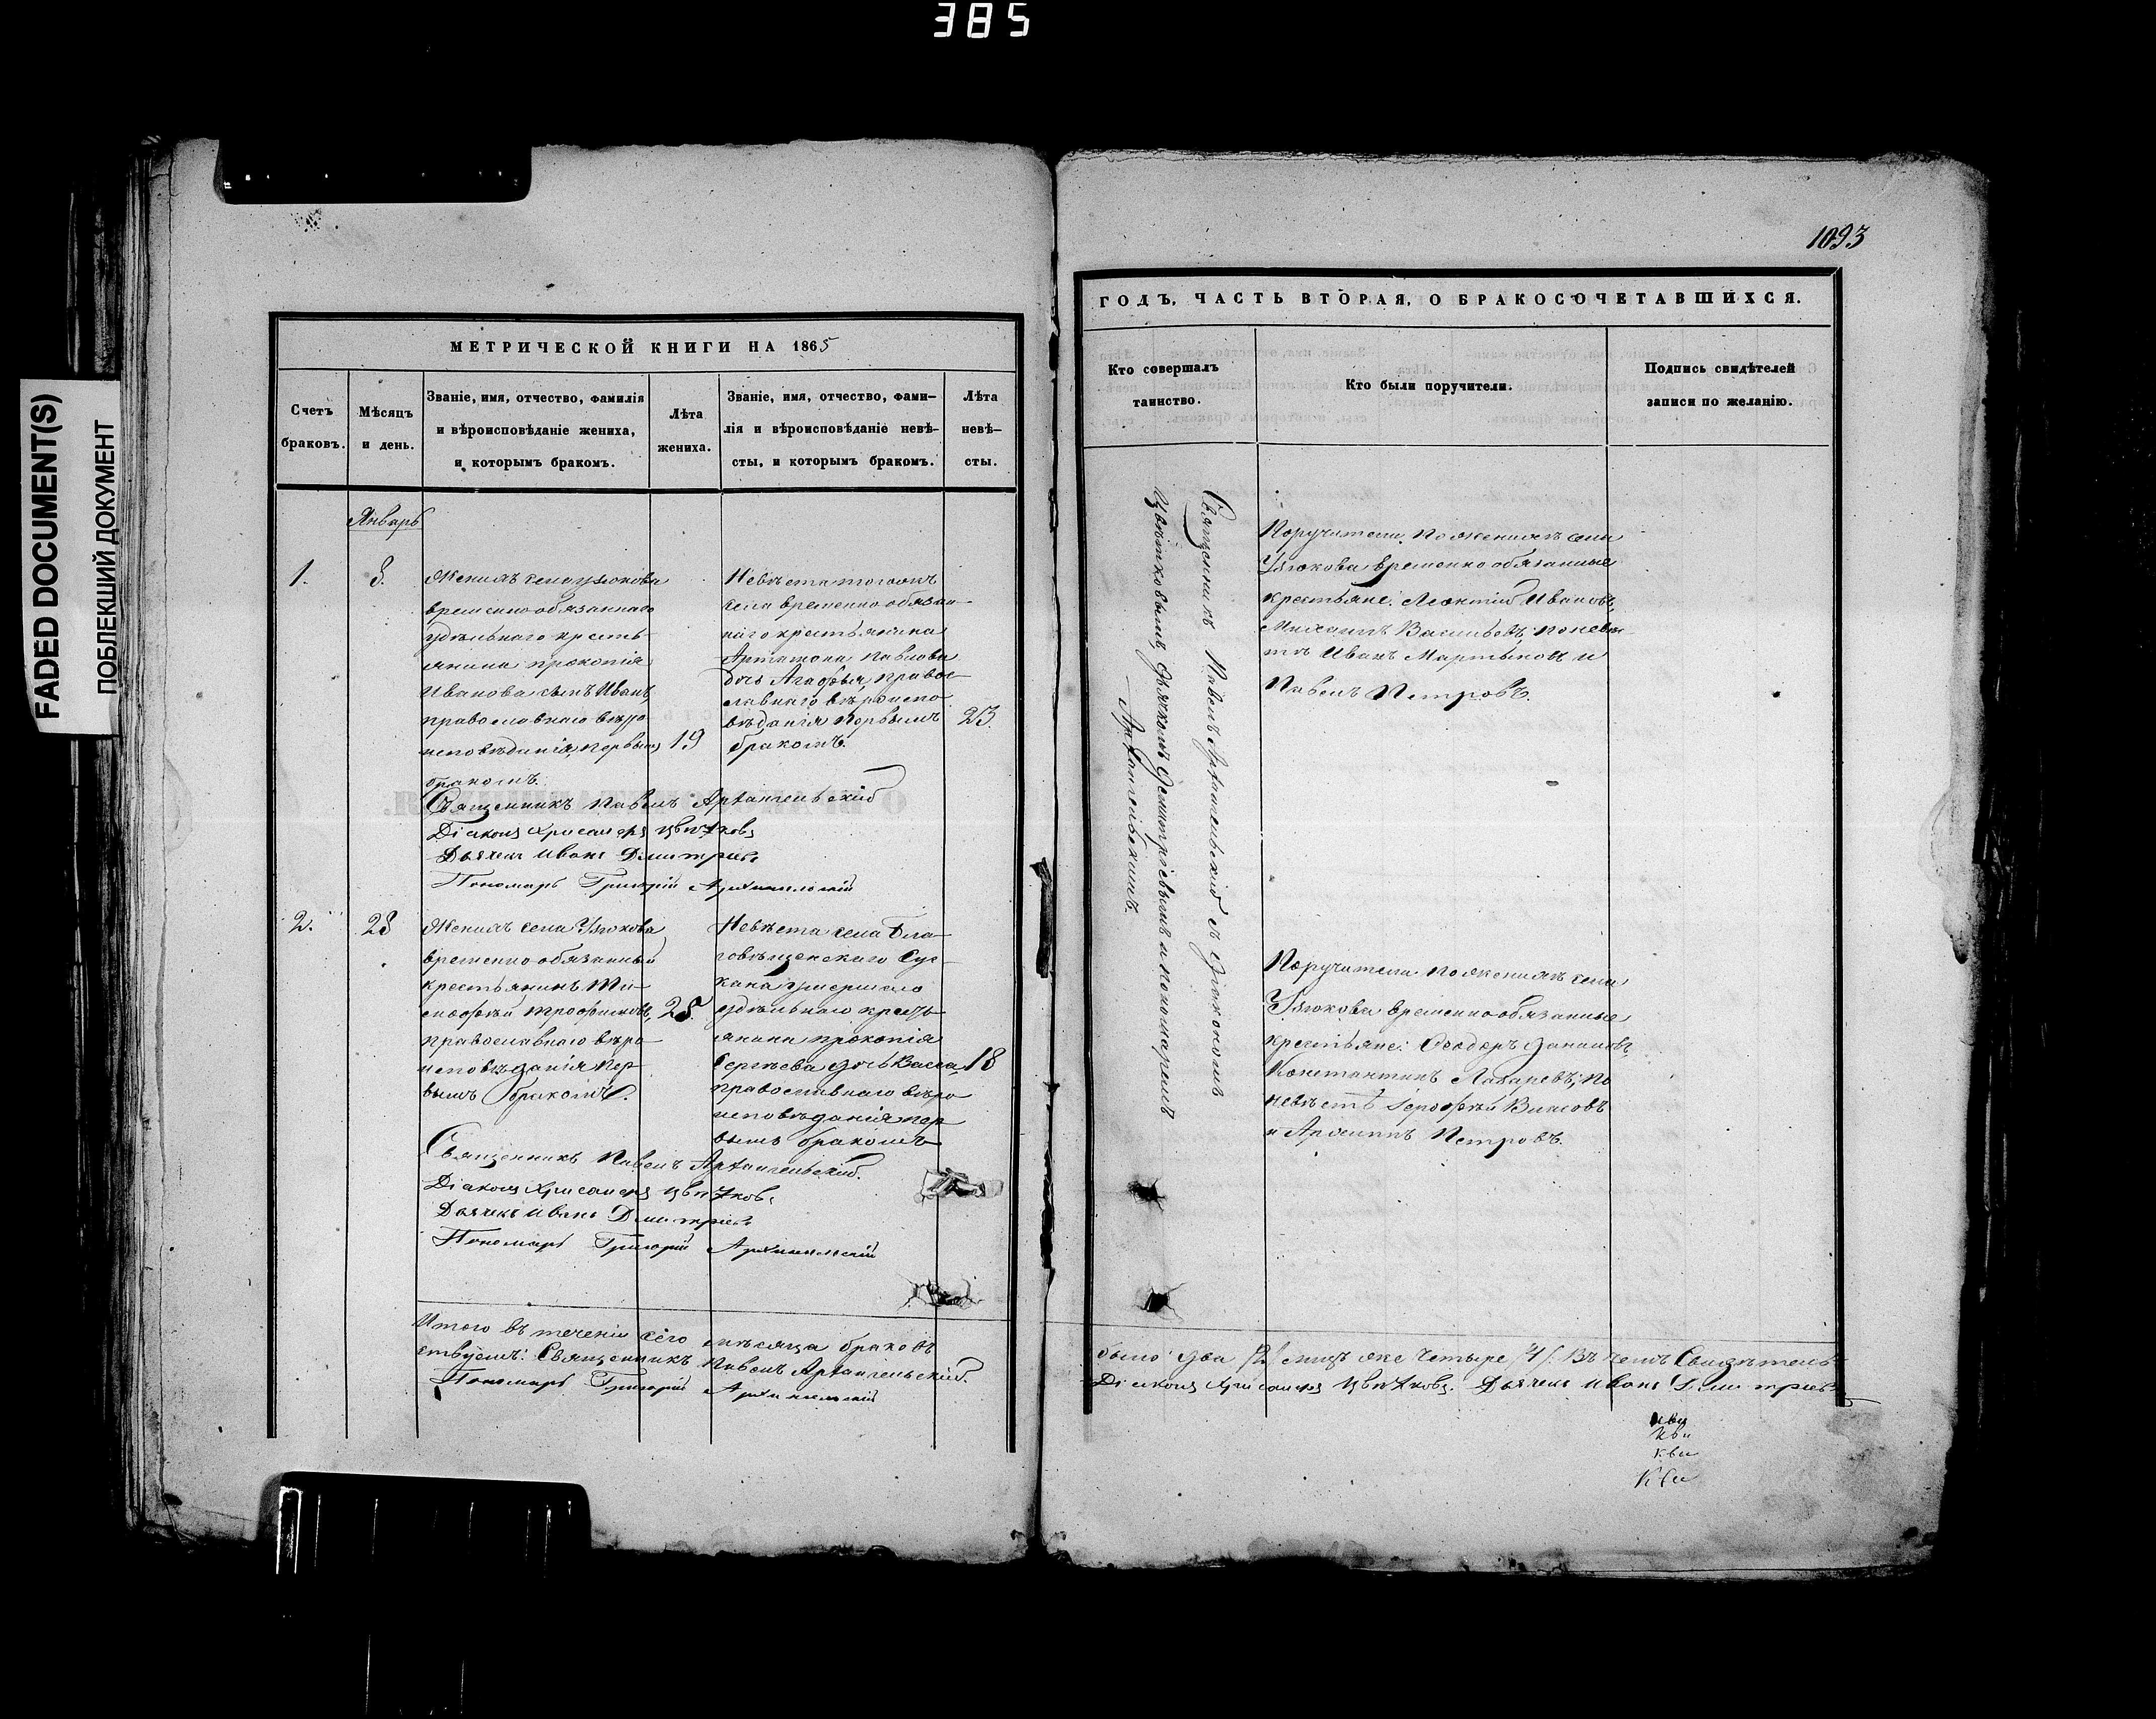 385
FADED DOCUMENT(S)
ПОБЛЕКШИЙ ДОКУМЕНТ
МЕТРИЧЕСКОЙ КНИГИ НА 1865
Счетъ браковъ.
Мѣсяцъ и день.
Званіе, имя, отчество, фамилія
и вѣроисповѣданіе жениха,
и которымъ бракомъ.
Лѣта жениха.
Званіе, имя, отчество, фами-
лія и вѣроисповѣданіе невѣ-
сты, и которымъ бракомъ.
Лѣта невѣ-
сты.
Январь
1.
8.
Женихъ села Узюкова
временно обязаннаго
удѣльнаго кресть-
янина Прокопія
Иванова сынъ Иванъ,
православнаго вѣро
исповѣданія, первымъ
бракомъ.
19
Невѣста тогожъ
села временно-обязан-
наго крестьянина
Артамона Павлова
дочь Агафья, право-
славнаго вѣроиспо-
вѣданія первымъ
бракомъ.
23.
Священникъ Павелъ Архангельскій
Діаконъ Хрисанфъ Цвѣтковъ
Дьячекъ Иванъ Димитріевъ
Пономарь Григорій Архангельскій
2.
28
Женихъ села Узюкова
временно-обязанный
крестьянинъ Ти-
моѳей Трофимовъ,
православнаго вѣро-
исповѣданія пер-
вымъ бракомъ.
25.
Невѣста села Бла-
говѣщенскаго Сус-
кана умершаго
удѣльнаго кресть-
янина Прокопія
Сергѣева дочь Васса,
православнаго вѣро
исповѣданія пер
вымъ бракомъ
18
Священникъ Павелъ Архангельскій.
Діаконъ Хрисанфъ Цвѣтковъ
Дьячекъ Иванъ Димитріевъ
Пономарь Григорій Архангельскій
Итого въ теченіи сего мѣсяца браковъ
ствуемъ: Священникъ Павелъ Архангельскій.
Пономарь Григорій Архангельскій
1093
ГОДЪ, ЧАСТЬ ВТОРАЯ, О БРАКОСОЧЕТАВШИХСЯ.
Кто совершалъ
таинство.
Кто были поручители.
Подпись свидѣтелей
записи по желанію.
Священникъ Павелъ Архангельскій съ діакономъ
Цвѣтковымъ дьячкомъ Димитріевымъ и пономаремъ
Архангельскимъ.
Поручители по женихѣ села
Узюкова временно обязанные
крестьяне: Леонтій Ивановъ,
Михаилъ Васильевъ; по невѣ-
стѣ Иванъ Мартыновъ и
Павелъ Петровъ.
Поручители по женихѣ села
Узюкова временно-обязанные
крестьяне: Ѳеодоръ Даниловъ,
Константинъ Лазаревъ; по
невѣстѣ Іероѳей
и Архиппъ Петровъ.
было два /2/ лицъ же четыре /4/. Въ чемъ Свидѣтель-
Діаконъ Хрисанфъ Цвѣтковъ. Дьячекъ Иванъ Димитріевъ